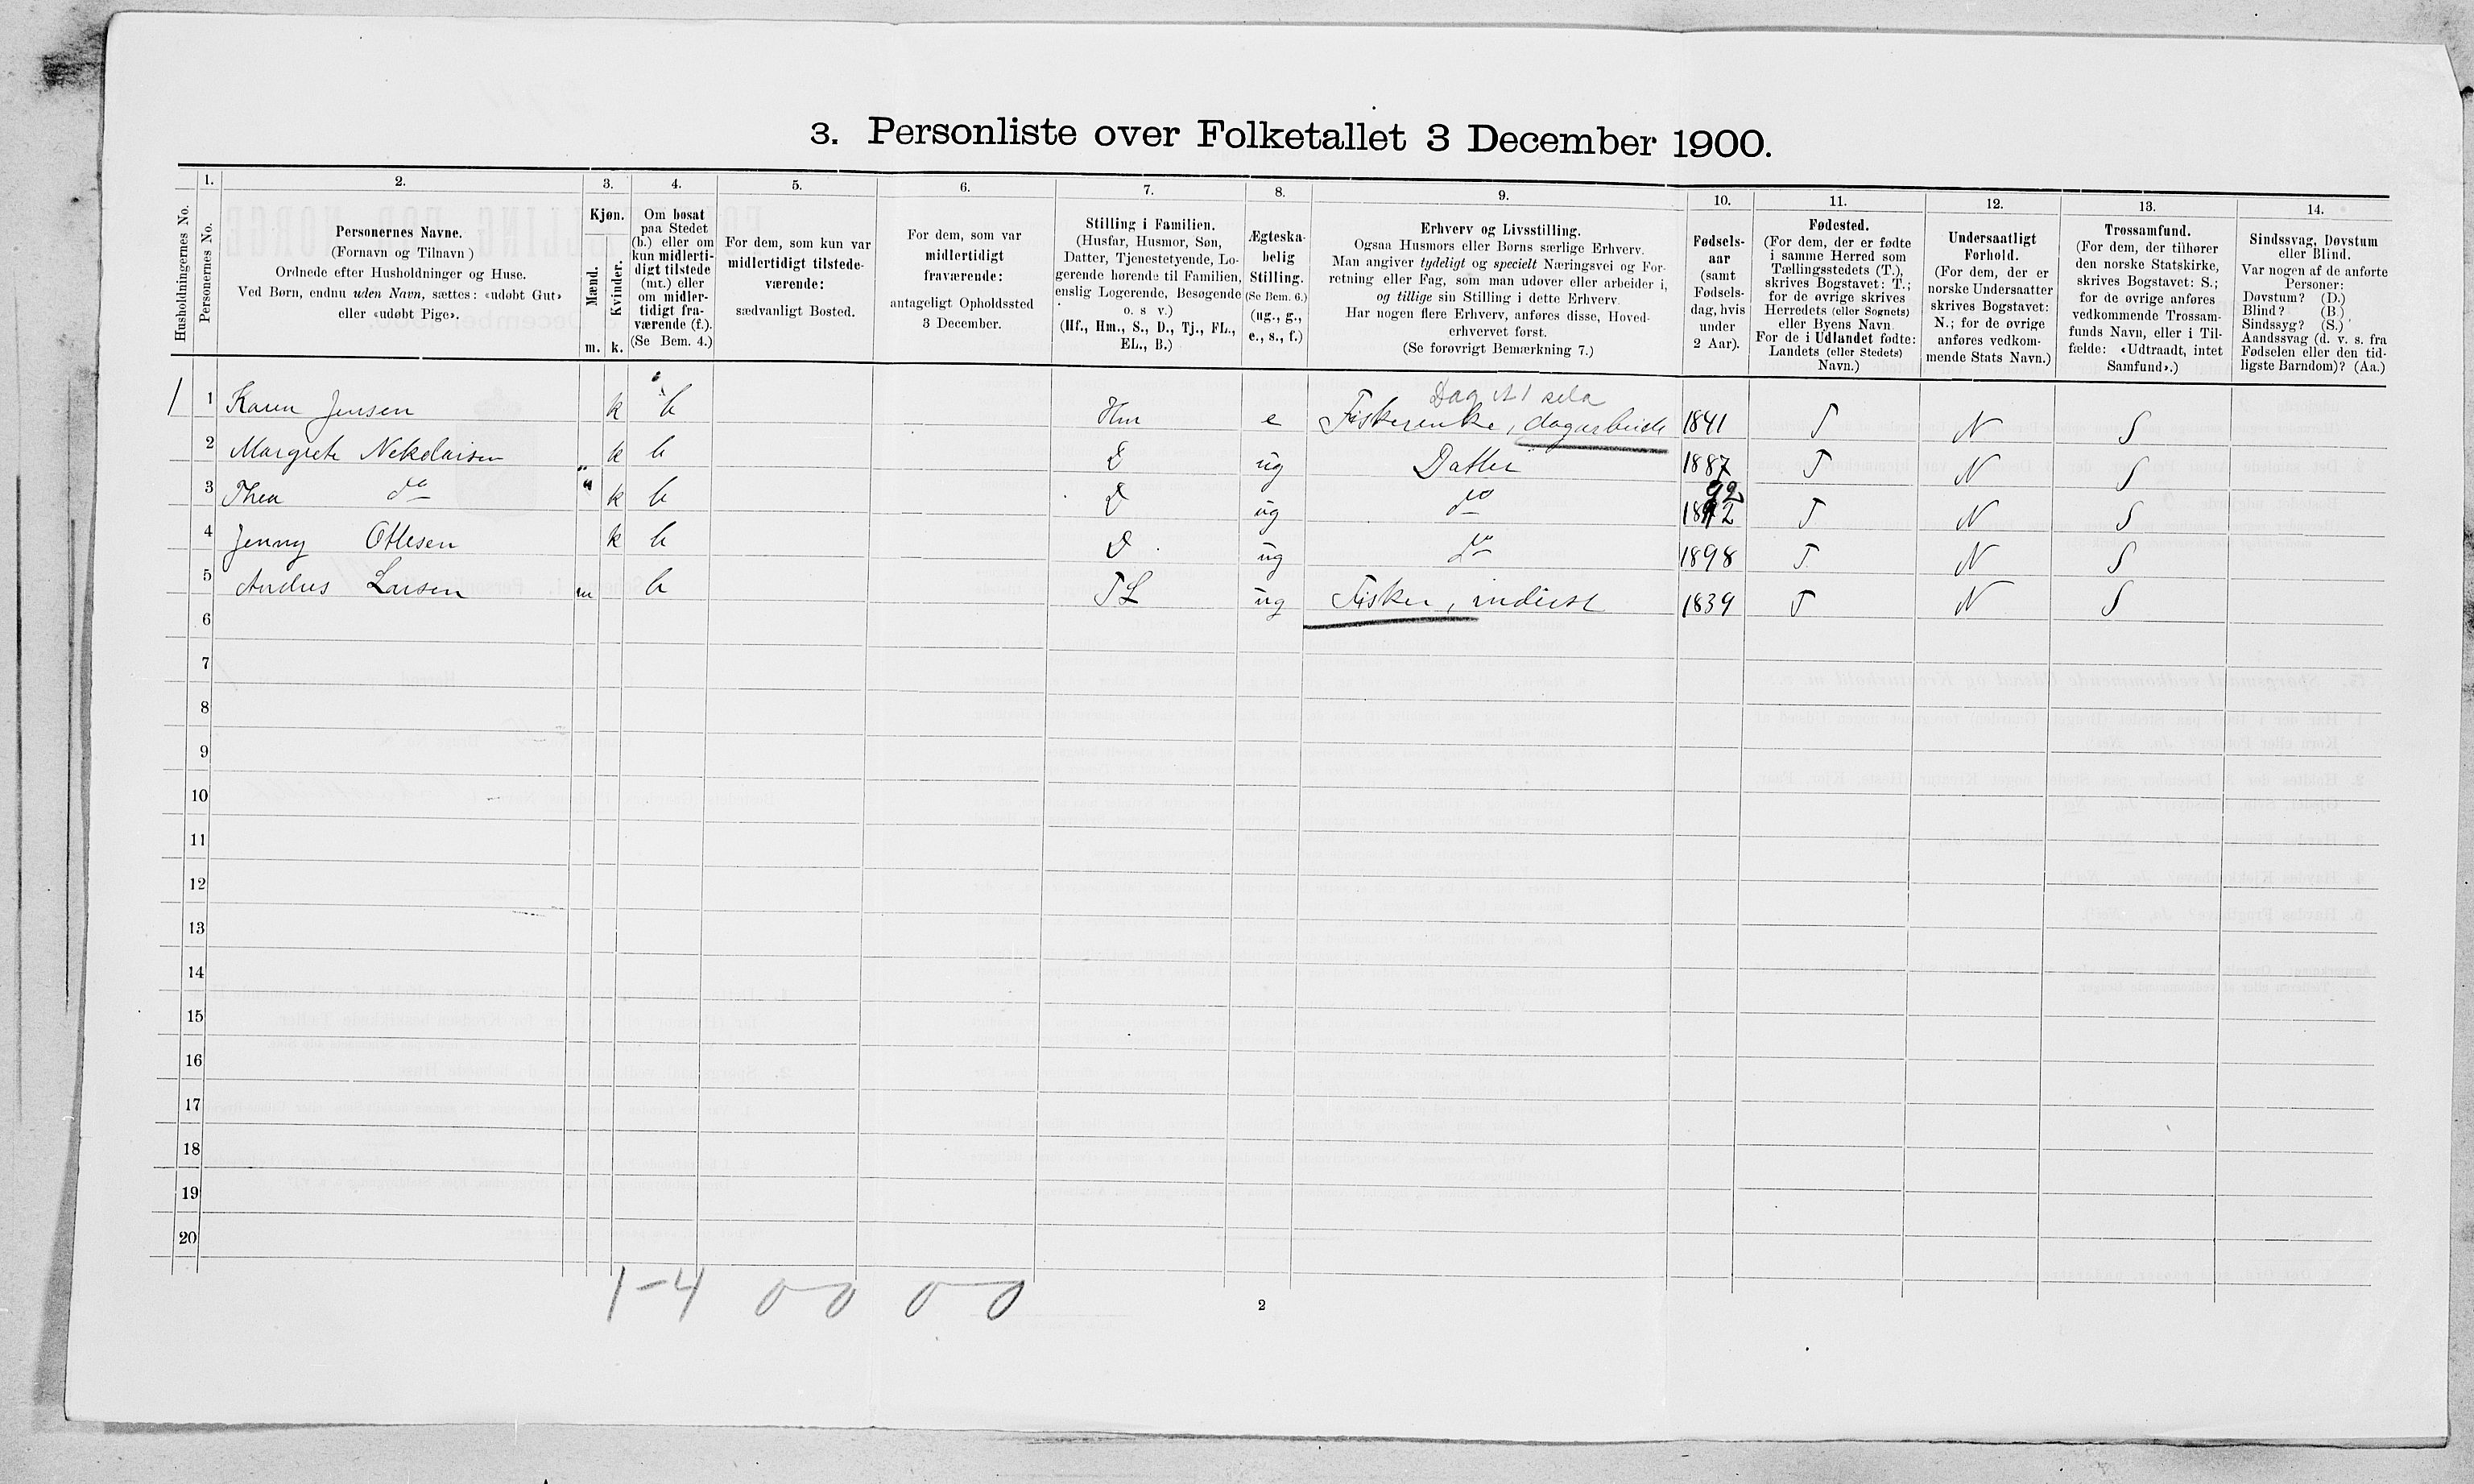 3. Personliste over Folketallet 3 December 1900.
Husholdningernes No.
1.
Personernes No.
2.
Personernes Navne.
(Fornavn og Tilnavn )
Ordnede efter Husholdninger og Huse.
Ved Børn, endnu uden Navn, sættes: «udøbt Gut»
eller «udøbt Pige».
3.
Kjøn.
Mænd.
Kvinder.
m. k.
4.
Om bosat
paa Stedet
(b.) eller om
kun midlerti-
digt tilstede
(mt.) eller
om midler-
tidigt fra-
værende (f.).
(Se Bem. 4.)
5.
For dem, som kun var
midlertidigt tilstede-
værende:
sædvanligt Bosted.
6.
For dem, som var
midlertidigt
fraværende:
antageligt Opholdssted
3 December.
7.
Stilling i Familien.
(Husfar, Husmor, Søn,
Datter, Tjenestetyende, Lo-
gerende hørende til Familien,
enslig Logerende, Besøgende
o. s v.)
(Hf., Hm., S., D., Tj., FL.,
EL., B.)
8.
Ægteska-
belig
Stilling.
(Se Bem. 6.)
(ug., g.,
e., s., f.)
9.
Erhverv og Livsstilling.
Ogsaa Husmors eller Børns særlige Erhverv.
Man angiver tydeligt og specielt Næringsvei og For-
retning eller Fag, som man udøver eller arbeider i,
og tillige sin Stilling i dette Erhverv.
Har nogen flere Erhverv, anføres disse, Hoved-
erhvervet først.
(Se forøvrigt Bemærkning 7.)
10.
Fødsels-
aar
(samt
Fødsels-
dag, hvis
under
2 Aar).
11.
Fødested.
(For dem, der er fødte
i samme Herred som
Tællingsstedets (T.),
skrives Bogstavet: T.;
for de øvrige skrives
Herredets (eller Sognets)
eller Byens Navn.
For de i Udlandet fødte:
Landets (eller Stedets)
Navn.)
12.
Undersaatligt
Forhold.
(For dem, der er
norske Undersaatter
skrives Bogstavet:
N.; for de øvrige
anføres vedkom-
mende Stats Navn.)
13.
Trossamfund.
(For dem, der tilhører
den norske Statskirke,
skrives Bogstavet: S.;
for de øvrige anføres
vedkommende Trossam-
funds Navn, eller i Til-
fælde: «Udtraadt, intet
Samfund».)
14.
Sindssvag, Døvstum
eller Blind.
Var nogen af de anførte
Personer:
Døvstum? (D.)
Blind? (B.)
Sindssyg? (S.)
Aandssvag (d. v. s. fra
Fødselen eller den tid-
ligste Barndom)? (Aa.)
1 1 Karen Jensen k b Hm e Fiskerenke, dagarbeide 1841 T N S
2 Margrete Nekolaisen k b D ug Datter 1887 T N S
3 Thea do " k b D ug do 92 18 2 T N S
4 Jenny Ottesen k b D ug do 1898 T N S
5 Andres Larsen m b FL ug Fisker, inderst 1839 T N S
6
7
8
9
10
11
12
13
14
15
16
17
18
19
20
1-4 0-0 0-0
2